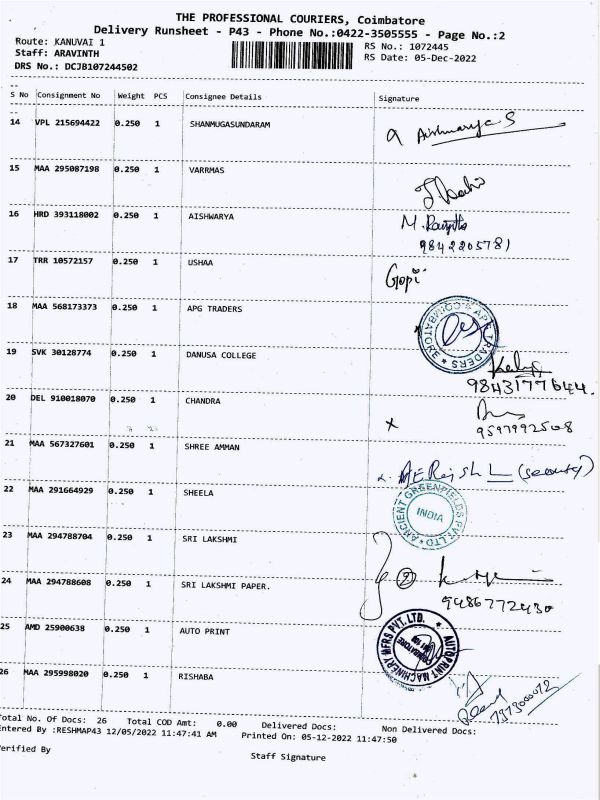 THE PROFESSIONAL COURIERS, Coimbatore
Delivery Runsheet - P43 - Phone No.:0422-3505555 - Page No.:2
Route: KANUVAI 1
RS No.: 1072445
Staff: ARAVINTH
RS Date: 05-Dec-2022
DRS No.: DCJB107244502
S No Consignment No Weight PCS Consignee Details Signature
14 VPL 215694422 0.250 1 SHANMUGASUNDARAM Aishwarya S
15 MAA 295087198 0.250 1 VARRMAS
16 HRD 393118002 0.250 1 AISHWARYA M.
9842205781
17 TRR 10572157 0.250 1 USHAA Gopi
18 MAA 568173373 0.250 1 APG TRADERS
19 SVK 30128774 0.250 1 DANUSA COLLEGE
9843177644.
20 DEL 910018070 0.250 1 CHANDRA
x 9597992508
21 MAA 567327601 0.250 1 SHREE AMMAN
(security)
22 MAA 291664929 0.250 1 SHEELA ANCIENT GREENFIELDS PVT LTD INDIA
23 MAA 294788704 0.250 1 SRI LAKSHMI
24 MAA 294788608 0.250 1 SRI LAKSHMI PAPER. 2
9486772430
25 AMD 25900638 0.250 1 AUTO PRINT AUTOPRINT MACHINERY MFRS PVT. LTD.
26 MAA 295998020 0.250 1 RISHABA
Total No. Of Docs: 26 Total COD Amt: 0.00 Delivered Docs: Non Delivered Docs:
Entered By :RESHMAP43 12/05/2022 11:47:41 AM Printed On: 05-12-2022 11:47:50
Verified By
Staff Signature